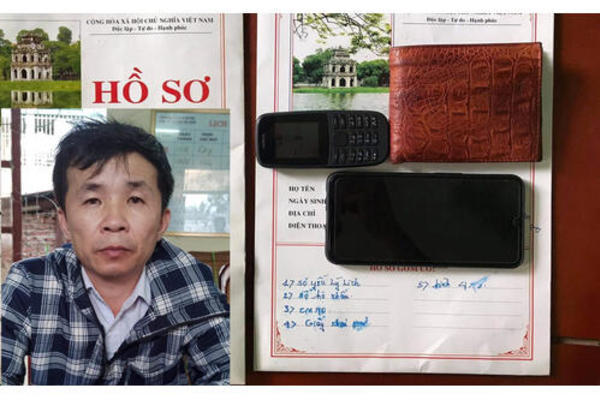 CỘNG HÒA XÃ HỘI CHỦ NGHĨA VIỆT NAM
Độc lập - Tự do - Hạnh phúc
HỒ SƠ
LỊCH
Độc lập - Tự do - Hạnh phúc
HỌ TÊN
NGÀY SINH
ĐỊA CHỈ
ĐIỆN THOẠ
HỒ SƠ GỒM CÓ:
1) Sơ yếu lý lịch
2) Sổ hộ khẩu
3) CMND
4) Giấy
5)